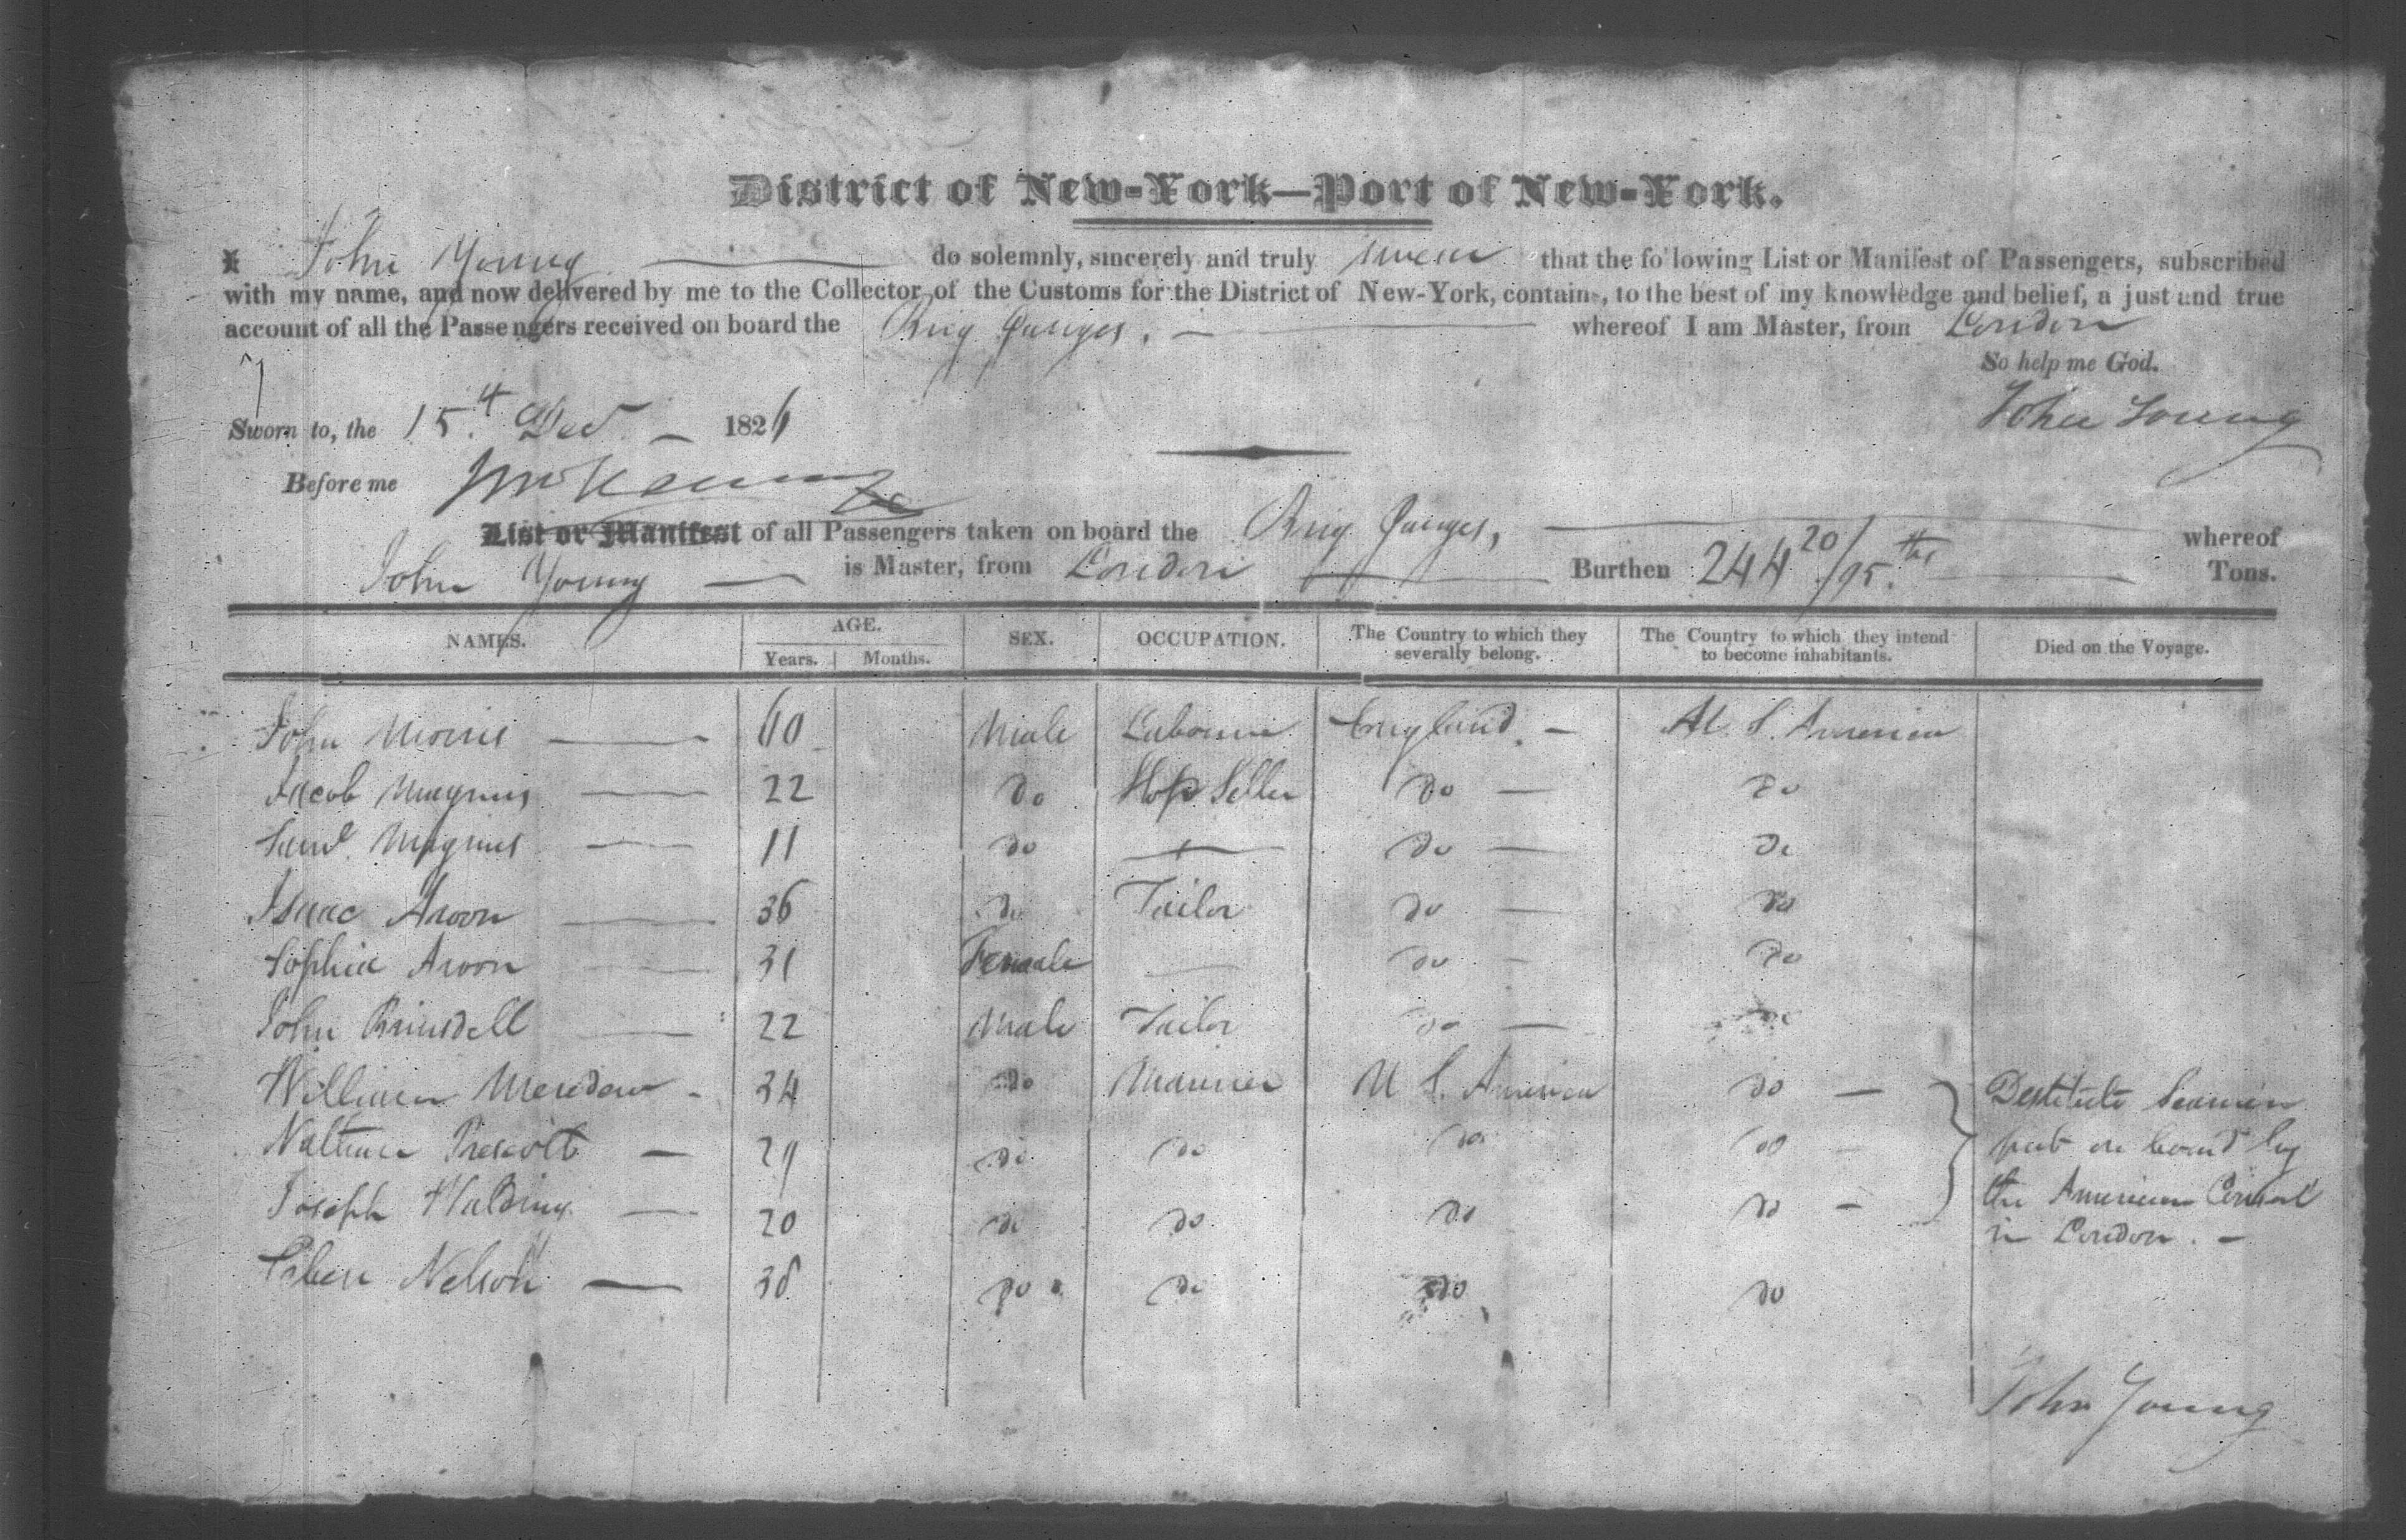 District of New-York—Port of New-York.
I John Young do solemnly, sincerely and truly swear that the following List or Manifest of Passengers, subscribed
with my name, and now delivered by me to the Collector of the Customs for the District of New-York, contains, to the best of my knowledge and belief, a just and true
account of all the Passengers received on board the Brig Ganges, whereof I am Master, from London
So help me God.
Sworn to, the 15th Decr 1826
John Young
Before me
List or Manifest of all Passengers taken on board the Brig Ganges, whereof
John Young is Master, from London Burthen 244 20/95ths Tons.
NAMES. AGE. SEX. OCCUPATION. The Country to which they severally belong. The Country to which they intend to become inhabitants. Died on the Voyage.
Years. Months.
John Morris Male Labourer England. U. S. America
Jacob Magnus 22 do Hop Seller do do
Saml. Magnus 11 do do do
Isaac Aroon 36 do Tailor do do
Sophia Aroon 31 Female do do
John 22 Male Tailor do do
William 34 do Mariner U S. America do Destitute Seamen
Nathan Prescott 29 do do do do put on board by
Joseph 20 do do do do the American Consul
in London.
Eben Nelson 38 do do do do
John Young